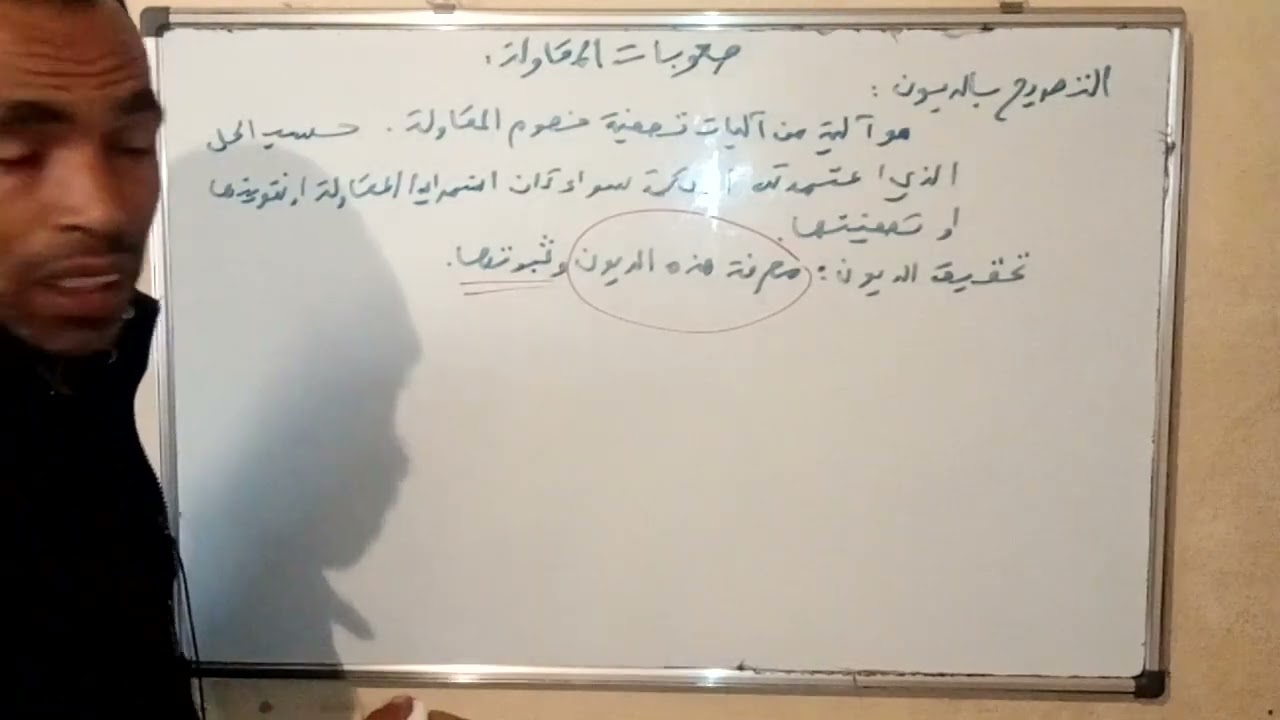 صعوبات المقاولة:
التصريح بالديون:
هو آلية من آليات تصفية خصوم المقاولة. حسب الحل
الذي اعتمدته المحكمة سواء كان استمرار المقاولة او تفويتها
او تصفيتها.
تحقيق الديون: معرفة هذه الديون وثبوتها.